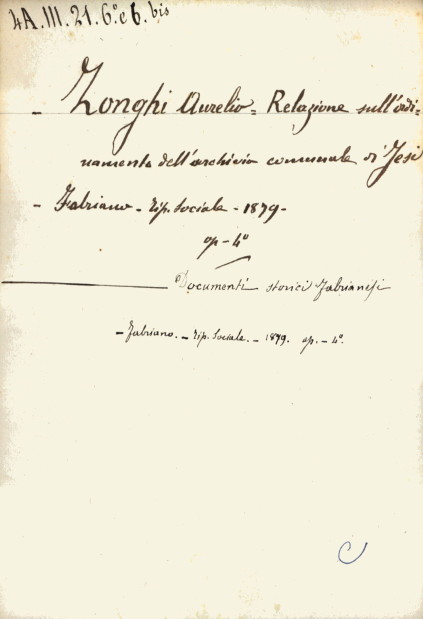 4A.III.21.6º e 6. bis
- Zonghi Aurelio = Relazione sull'ordi=
namento dell'archivio comunale di Jesi
- Fabriano - Tip. Sociale - 1879 -
op - 4º
Documenti storici Fabrianesi
- Fabriano. - Tip. Sociale. - 1879. op. - 4º.